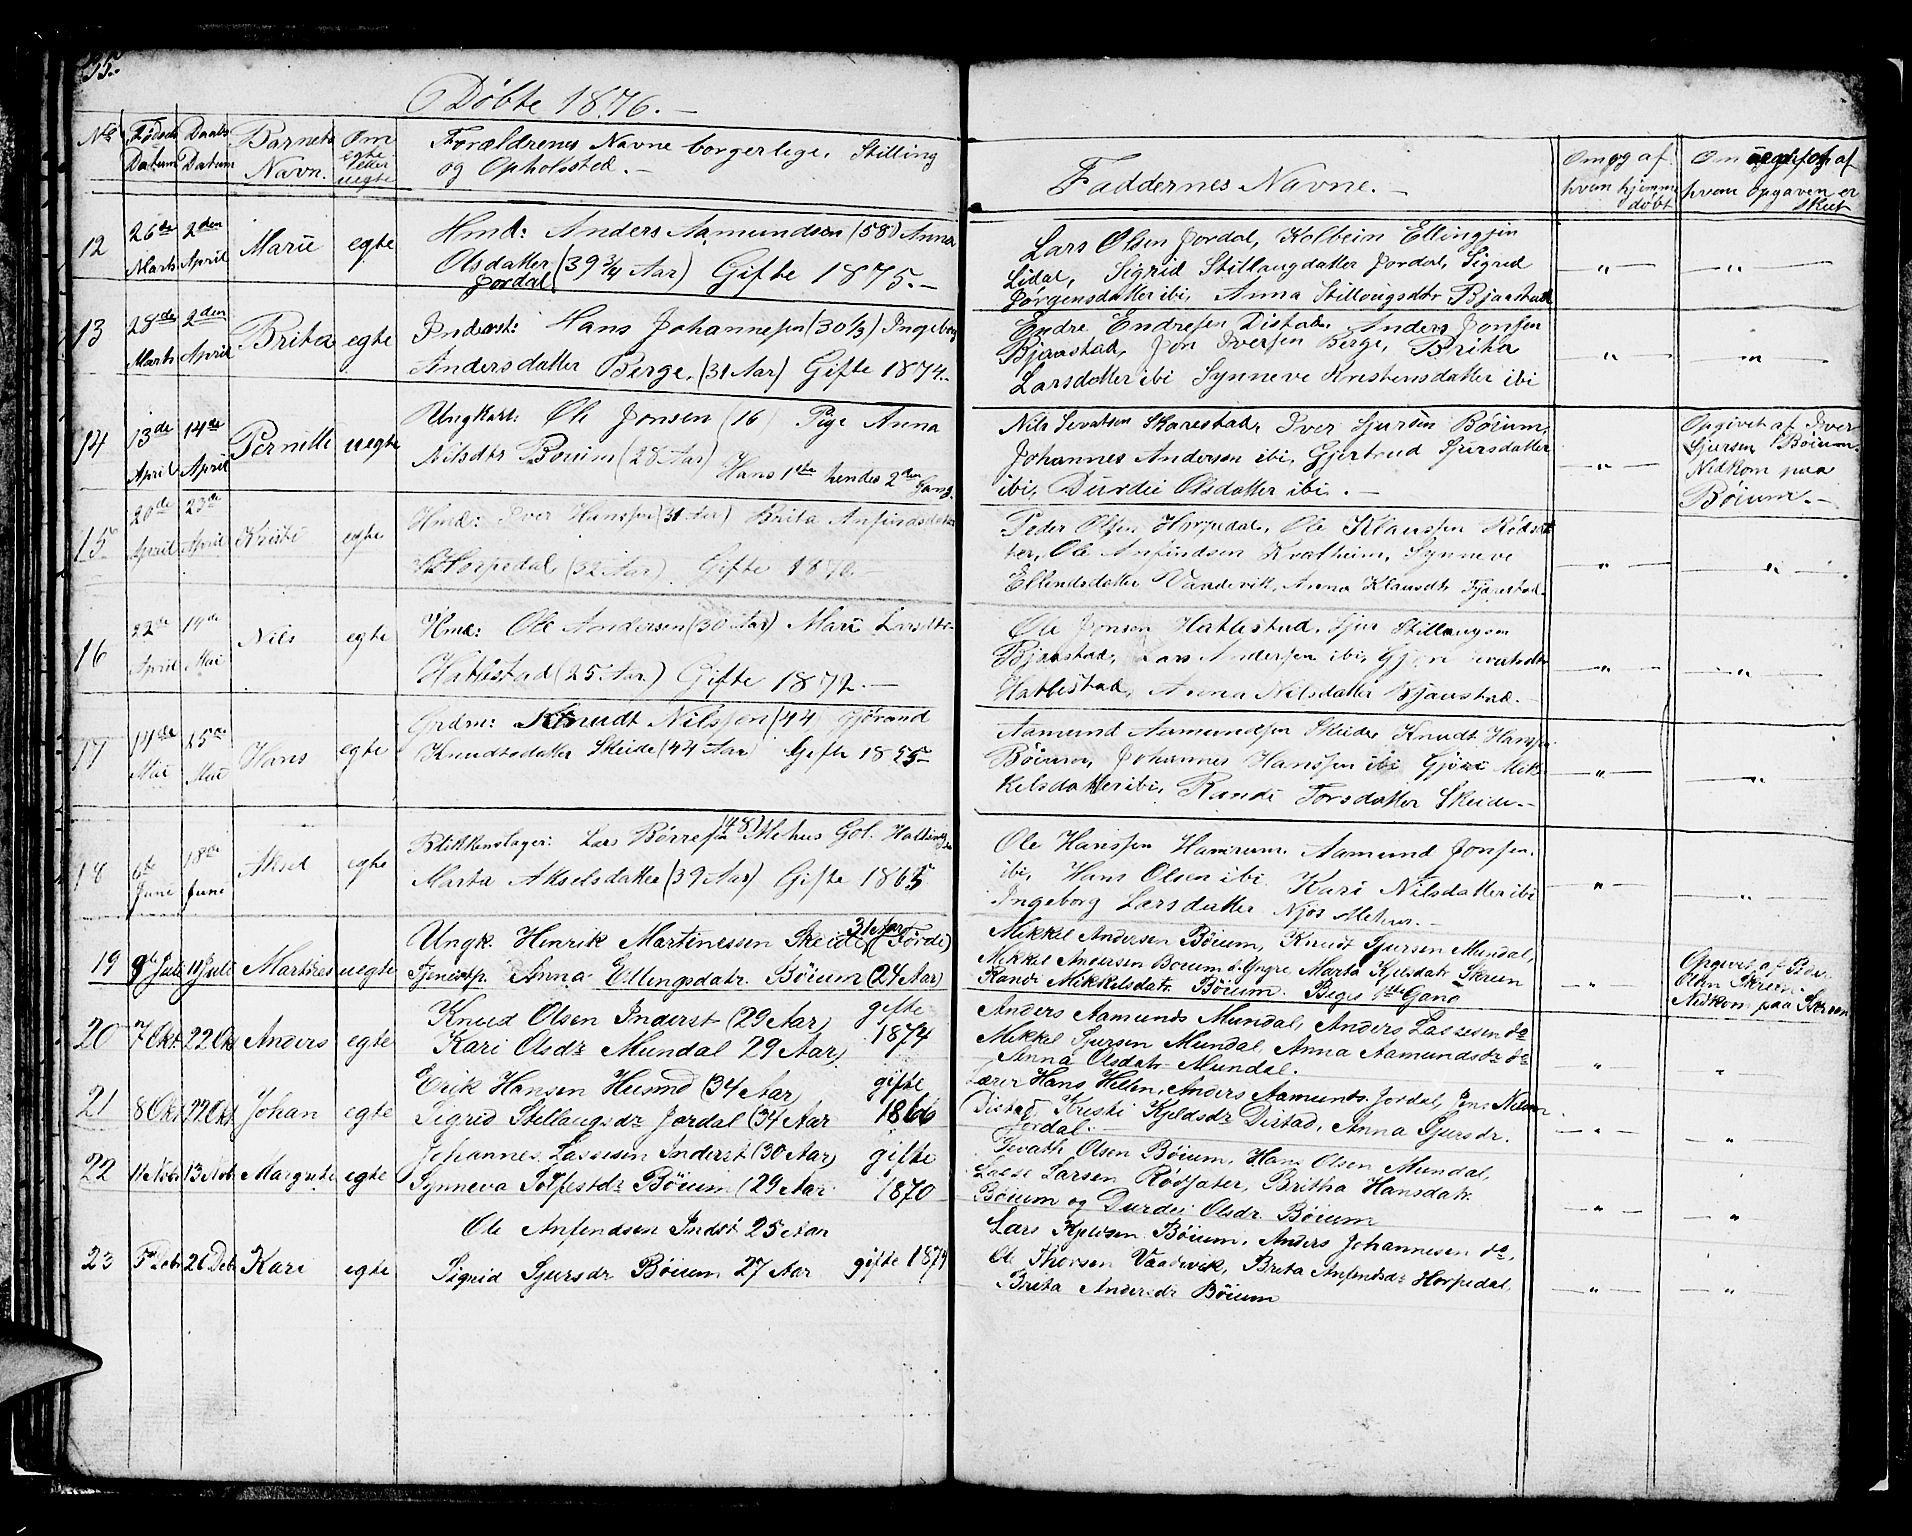 35.
Døbte 1876.—
No Fødsels Datum Daabs Datum Barnets Navn. Om egte eller uegte Forældrenes Navne borgerlige Stilling og Opholssted.—
Faddernes Navne.—
Om og af hvem hjemme døbt
af hvem opgaven er skeet
12 26de Marts 2den April Marie egte
Hmd: Anders Aamundsen (58) Anna
Olsdatter (39 3/4 Aar) Gifte 1875.—
Jordal
Lars Olsen Jordal, Kolbein Ellingsen
Lidal, Sigrid Stillaugdatter Jordal, Sigrid
Jørgensdatter ibi, Anna Stillougsdtr Bjaastad
13 28de Marts 2den April Brita egte
Inderst: Hans Johannesen (30 1/3) Ingeborg
Andersdatter Berge, (31 Aar) Gifte 1874.
Endre Endresen Distad, Anders Jonsen
Bjaastad, Jon Iversen Berge, Brita
Larsdatter ibi Synneve Kristensdatter ibi
14 13de April 14de April Pernille uegte
Ungkarl: Ole Jonsen (16) Pige Anna
Nilsdtr Bøium (28 Aar)
Hans 1ste hendes 2den Gang.
Nils Sevatsen Skarestad, Iver Sjursen Bøium,
Johannes Andersen ibi, Gjertrud Sjursdatter
ibi, Durdei Olsdatter ibi.—
Opgivet af Iver
Sjursen Bøium.
Nedkom paa
Bøium.—
15 20de April 23de April Kristi egte
Hmd: Iver Hanssen (31 Aar) Brita Anfindsdatter
Horpedal, (32 Aar) Gifte 1870.—
Peder Olsen Horpedal, Ole Klaussen Rødsæ
ter, Ole Anfindsen Kvalheim, Synneve
Ellendsdatter Vaadevik, Anna Klausdtr Bjaastad.
16 22de April 14de Mai Nils egte
Hmd: Ole Andersen (30 Aar) Mari Larsdtr
Hatlestad (25 Aar) Gifte 1872.—
Ole Jonsen Hatlestad, Sjur Stillaugsen
Bjaastad, Lars Andersen ibi,
Hatlestad, Anna Nilsdatter Bjaastad.—
17 14de Mai 25de Mai Hans egte
Grdm: Knudt Nilssen (44 Gjørand
Knudtsdatter Skeide (44 Aar Gifte 1855—
Aamund Aamundsen Skeide Knudt Hanssen
Bøium, Johannes Hanssen ibi Gjøri Mik-
kelsdatter ibi, Randi Torsdatter Skeide.—
18 6te June 18de June Aksel egte
Blikkenslager: Lars Børresen (48) Mehus Gol. Hallingd.
Marta Akselsdatter (39 Aar) Gifte 1865
Ole Hanssen Hamrum. Aamund Jonsen.
ibi, Hans Olsen ibi. Kari Nilsdatter ibi
Ingeborg Larsdatter Njøs Mehus.—
19 9de Juli 11 Juli Martines uegte
Ungk. Henrik Martinessen Skeide (31 Aar Førde)
Tjenestp. Anna Ellingsdatr. Bøium (24 Aar)
Mikkel Andersen Bøium, Knudt Sjursen Mundal,
Mikkel Andersen Boium d. Yngre Marta Kjelsdatr Skrein
Randi Mikkelsdatr. Bøium. Beges 1ste Gang
Opgivet af Peder
Olsen Skrein
Nedkom paa Skrein
20 7 Okt. 22 Ok Anders egte
Knud Olsen Inderst (29 Aar) gifte
Kari Olsdr Mundal 29 Aar) 1874
Anders Aamunds Mundal, Anders Lassesen do
Mikkel Sjursen Mundal, Anna Aamundsdr do
Anna Olsdatr Mundal.
21 8 Okt 22 Okt Johan egte
Erik Hansen Husmd (34 Aar) gifte
Sigrid Stellaugsdr Jordal (34 Aar 1866
Lærer Hans Hellen, Anders Aamunds. Jordal, Jens Nielsen
Distad Kristi Kjeldsdr Distad, Anna Sjursdr.
Jordal.
22 11 Nobr 13 Nob. Margrete egte
Johannes Lassesen Inderst (30 Aar) gifte
Synneva Tolfestdr Bøium (29 Aar 1870
Sevath Olsen Bøium, Hans Olsen Mundal,
Lasse Larsen Rødsæter, Britha Hansdatr
Bøium og Durdei Olsdr Bøium
23 5 Debr 26 Deb Kari egte
Ole Anfendsen Indst 25 Aar
Sigrid Sjursdr Bøium 27 Aar gifte 1874
Lars Kjelsen Bøium, Anders Johannesen do,
Ole Thorsen Vaadevik, Brita Anfendsdr Horpedal,
Brita Andersdr Bøium